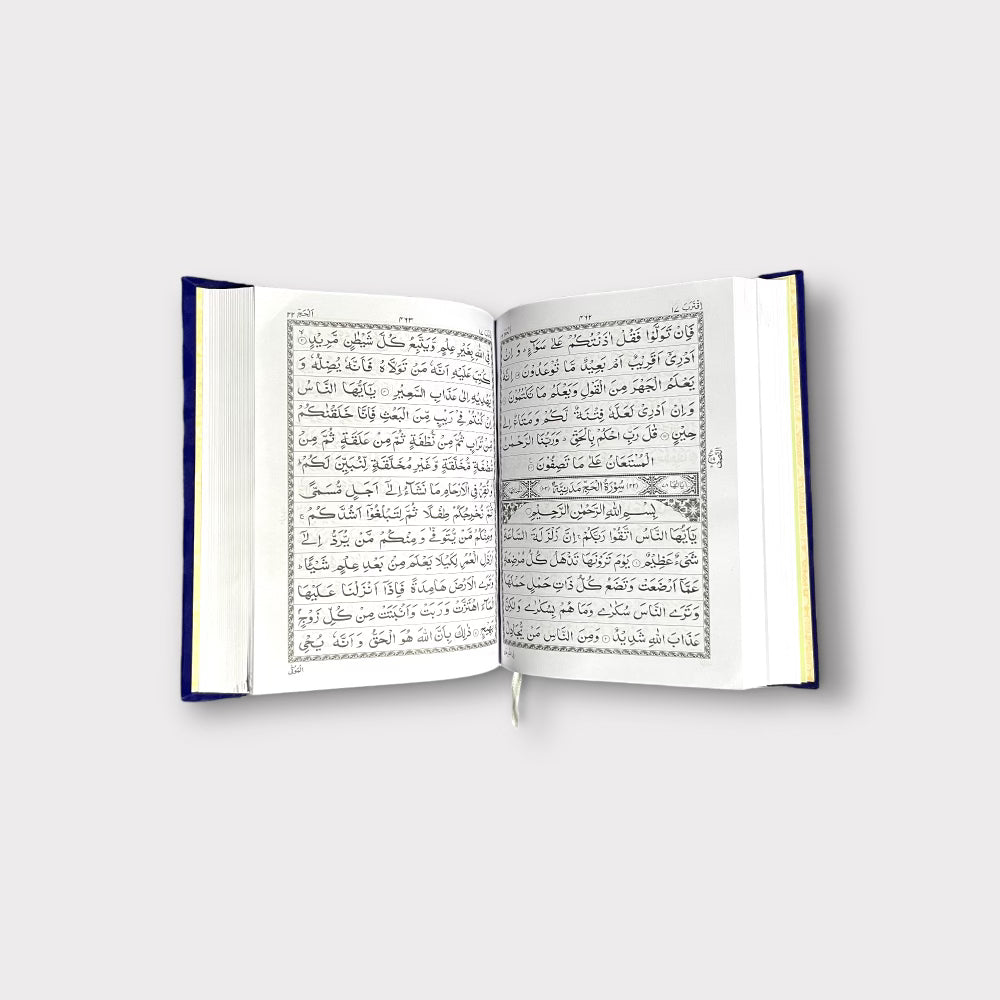 اِقْتَرَبَ ١٧
٤٦٢
فَاِنْ تَوَلَّوْا فَقُلْ اٰذَنْتُكُمْ عَلٰى سَوَآءٍ ؕ وَ اِنْ
اَدْرِيْۤ اَقَرِيْبٌ اَمْ بَعِيْدٌ مَّا تُوْعَدُوْنَ ۞ اِنَّهٗ
يَعْلَمُ الْجَهْرَ مِنَ الْقَوْلِ وَيَعْلَمُ مَا تَكْتُمُوْنَ ۞
وَاِنْ اَدْرِيْ لَعَلَّهٗ فِتْنَةٌ لَّكُمْ وَمَتَاعٌ اِلٰى
حِيْنٍ ۞ قٰلَ رَبِّ احْكُمْ بِالْحَقِّ ؕ وَرَبُّنَا الرَّحْمٰنُ
الْمُسْتَعَانُ عَلٰى مَا تَصِفُوْنَ ۞
سُوْرَةُ الْحَجِّ مَدَنِيَّةٌ
بِسْمِ اللّٰهِ الرَّحْمٰنِ الرَّحِيْمِ
يٰۤاَيُّهَا النَّاسُ اتَّقُوْا رَبَّكُمْ ۚ اِنَّ زَلْزَلَةَ السَّاعَةِ
شَيْءٌ عَظِيْمٌ ۞ يَوْمَ تَرَوْنَهَا تَذْهَلُ كُلُّ مُرْضِعَةٍ
عَمَّاۤ اَرْضَعَتْ وَتَضَعُ كُلُّ ذَاتِ حَمْلٍ حَمْلَهَا
وَتَرَى النَّاسَ سُكٰرٰى وَمَا هُمْ بِسُكٰرٰى وَلٰكِنَّ
عَذَابَ اللّٰهِ شَدِيْدٌ ۞ وَمِنَ النَّاسِ مَنْ يُّجَادِلُ
اَلْحَجّ ٢٢
٤٦٣
فِي اللّٰهِ بِغَيْرِ عِلْمٍ وَّيَتَّبِعُ كُلَّ شَيْطٰنٍ مَّرِيْدٍ ۞
كُتِبَ عَلَيْهِ اَنَّهٗ مَنْ تَوَلَّاهُ فَاَنَّهٗ يُضِلُّهٗ وَ
يَهْدِيْهِ اِلٰى عَذَابِ السَّعِيْرِ ۞ يٰۤاَيُّهَا النَّاسُ
اِنْ كُنْتُمْ فِيْ رَيْبٍ مِّنَ الْبَعْثِ فَاِنَّا خَلَقْنٰكُمْ
مِّنْ تُرَابٍ ثُمَّ مِنْ نُّطْفَةٍ ثُمَّ مِنْ عَلَقَةٍ ثُمَّ مِنْ
مُّضْغَةٍ مُّخَلَّقَةٍ وَّغَيْرِ مُخَلَّقَةٍ لِّنُبَيِّنَ لَكُمْ ؕ
وَنُقِرُّ فِي الْاَرْحَامِ مَا نَشَآءُ اِلٰۤى اَجَلٍ مُّسَمًّى
ثُمَّ نُخْرِجُكُمْ طِفْلًا ثُمَّ لِتَبْلُغُوْۤا اَشُدَّكُمْ ۚ
وَمِنْكُمْ مَّنْ يُّتَوَفّٰى وَمِنْكُمْ مَّنْ يُّرَدُّ اِلٰۤى
اَرْذَلِ الْعُمُرِ لِكَيْلَا يَعْلَمَ مِنْۢ بَعْدِ عِلْمٍ شَيْـًٔا ؕ
وَتَرَى الْاَرْضَ هَامِدَةً فَاِذَاۤ اَنْزَلْنَا عَلَيْهَا
الْمَآءَ اهْتَزَّتْ وَرَبَتْ وَاَنْۢبَتَتْ مِنْ كُلِّ زَوْجٍۢ
بَهِيْجٍ ۞ ذٰلِكَ بِاَنَّ اللّٰهَ هُوَ الْحَقُّ وَاَنَّهٗ يُحْيِ